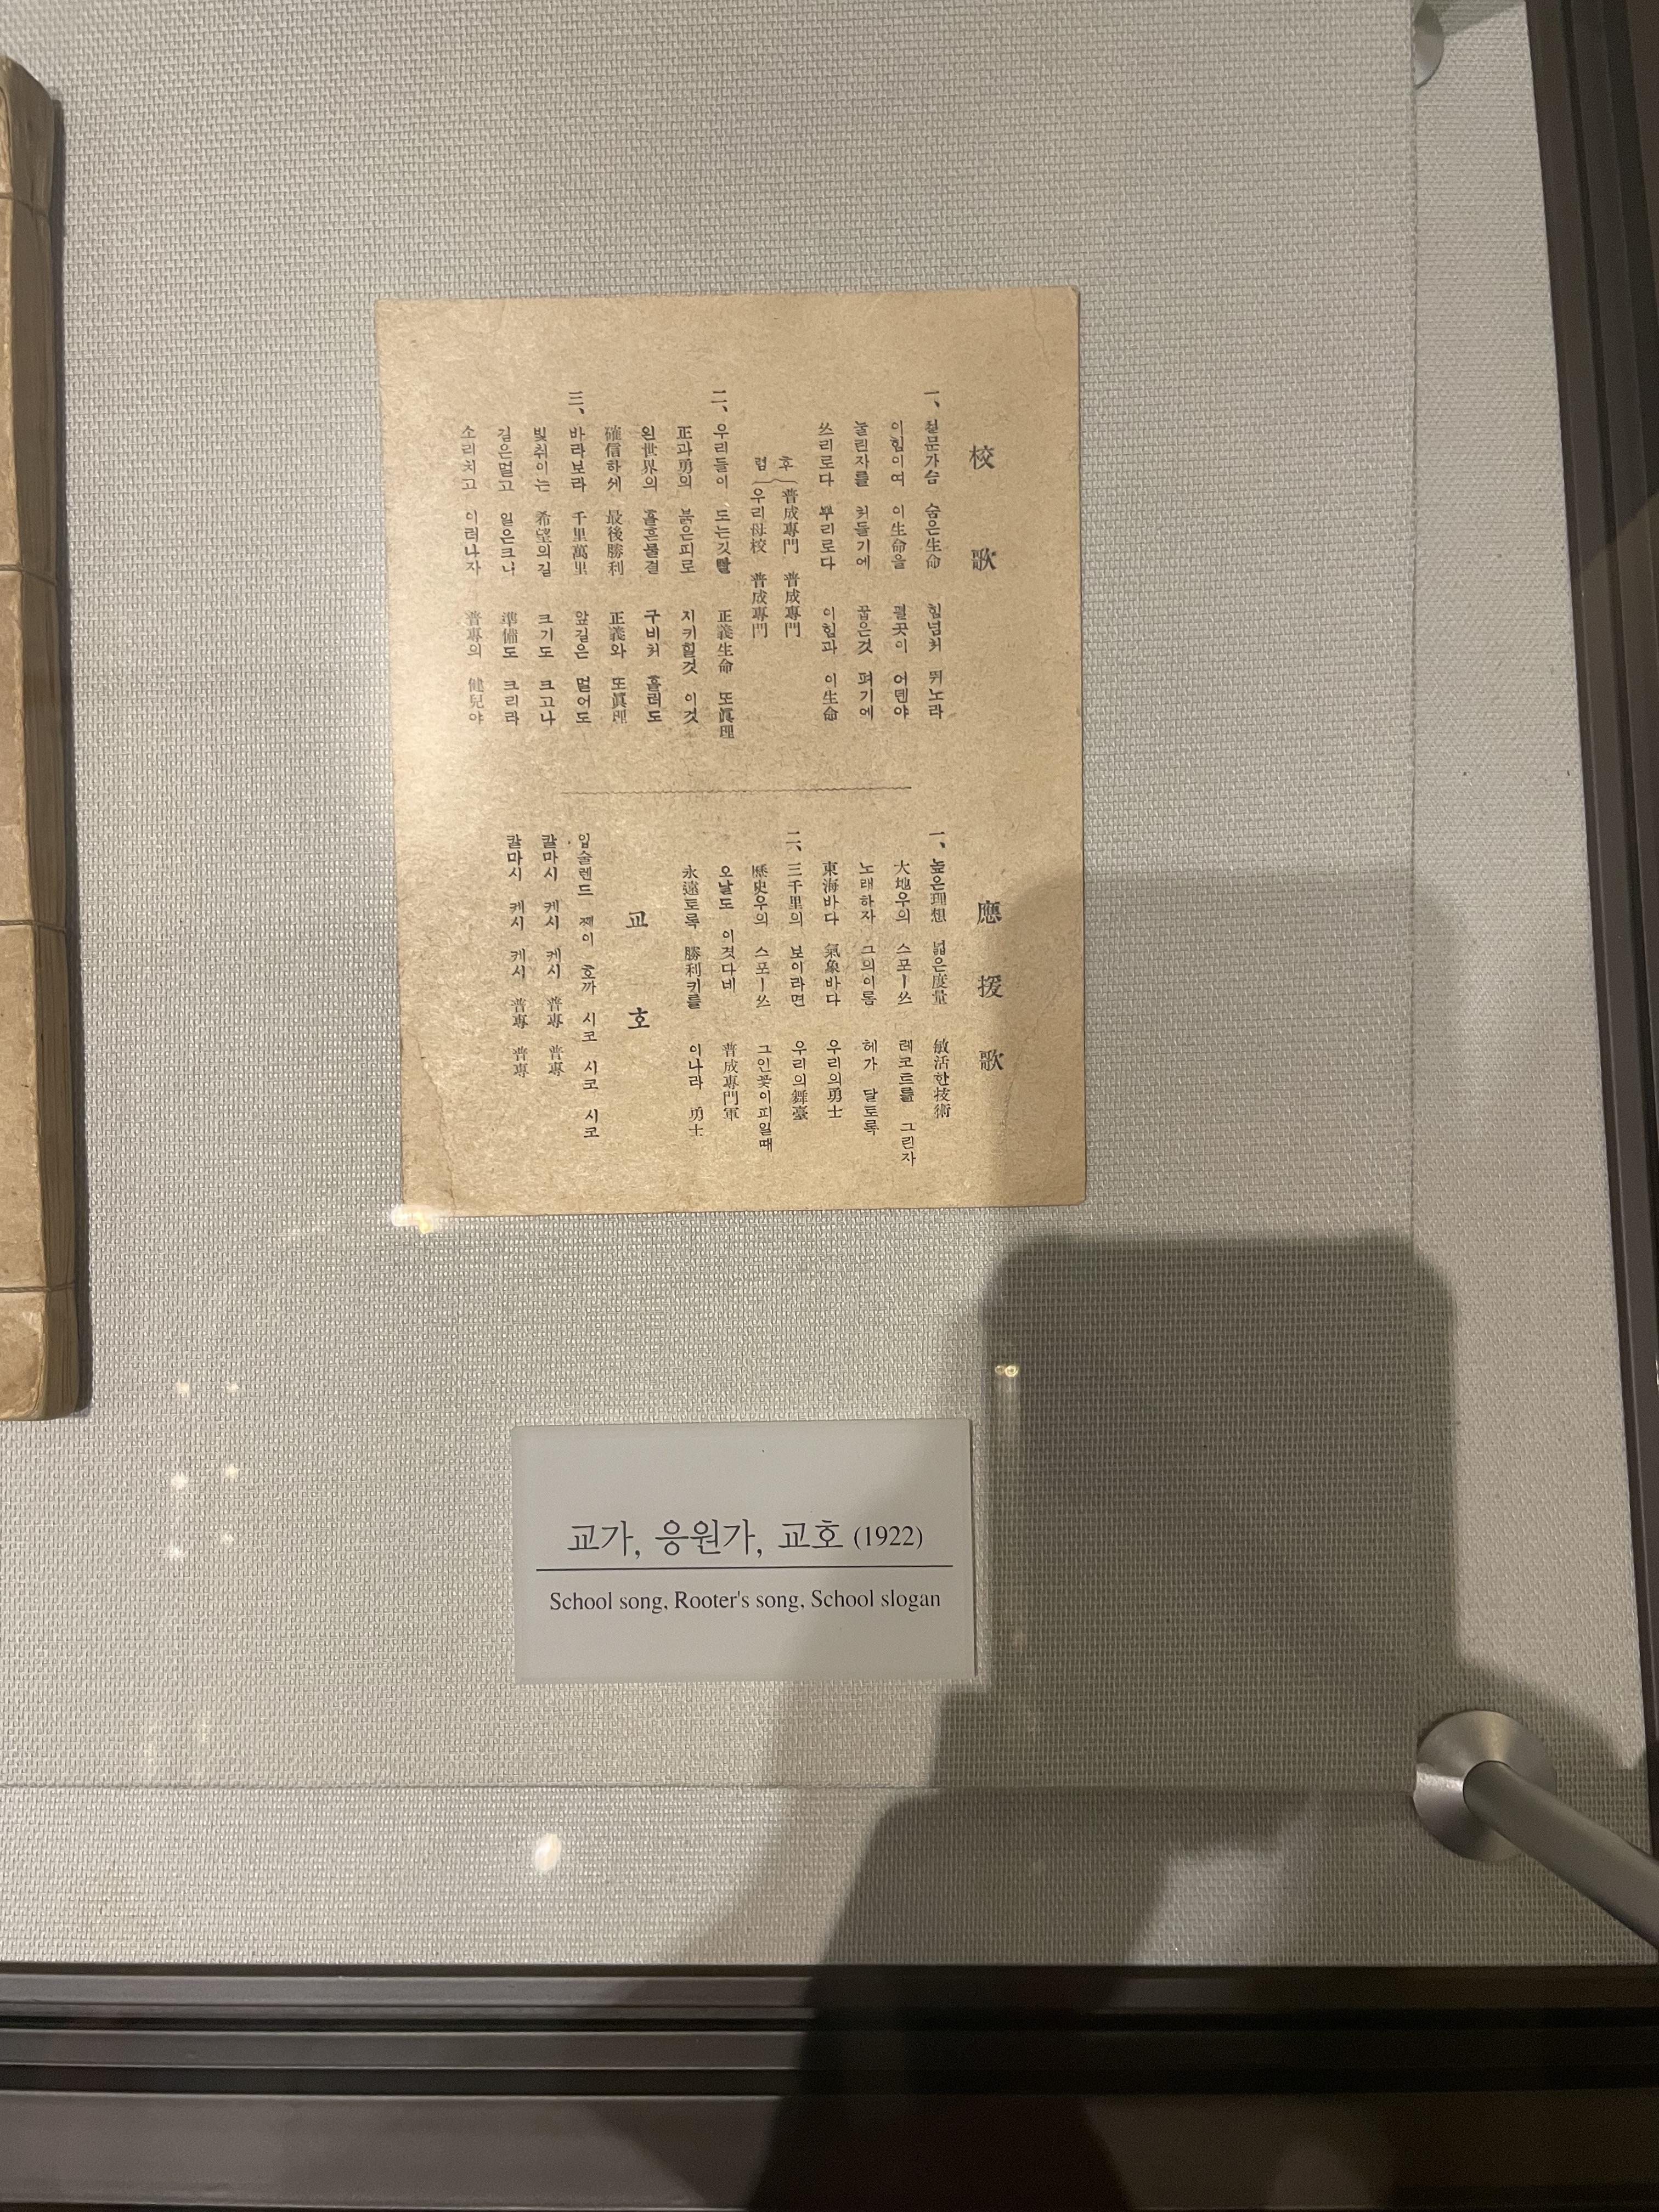 校歌
一、젊문가슴 숨은生命 힘넘처 뛰노라
이힘이여 이生命을 펼곳이 어덴야
눌린자를 처들기에 꿉은것 펴기에
쓰리로다 뿌리로다 이힘과 이生命
후렴 普成專門 普成專門
우리母校 普成專門
二、우리들이 도는깃빨 正義生命 또眞理
正과勇의 붉은피로 지키힐것 이것
왼世界의 흘흔물결 구비처 흘러도
確信하세 最後勝利 正義와 또眞理
三、바라보라 千里萬里 앞길은 멀어도
빛취이는 希望의길 크기도 크고나
길은멀고 일은크니 準備도 크리라
소리치고 이러나자 普專의 健兒야
應援歌
一、높은理想 넓은度量 敏活한技術
大地우의 스포ー쓰 레코드를 그린자
노래하자 그의이룸 헤가 달토록
東海바다 氣象바다 우리의勇士
二、三千里의 보이라면 우리의舞臺
歷史우의 스포ー쓰 그인꽃이피일때
오날도 이겻다네 普成專門軍
永遠토록 勝利키를 이나라 勇士
교호
입술렌드 쩨이 호까 시코 시코 시코
칼마시 케시 케시 普專 普專
칼마시 케시 케시 普專 普專
교가, 응원가, 교호 (1922)
School song, Rooter's song, School slogan